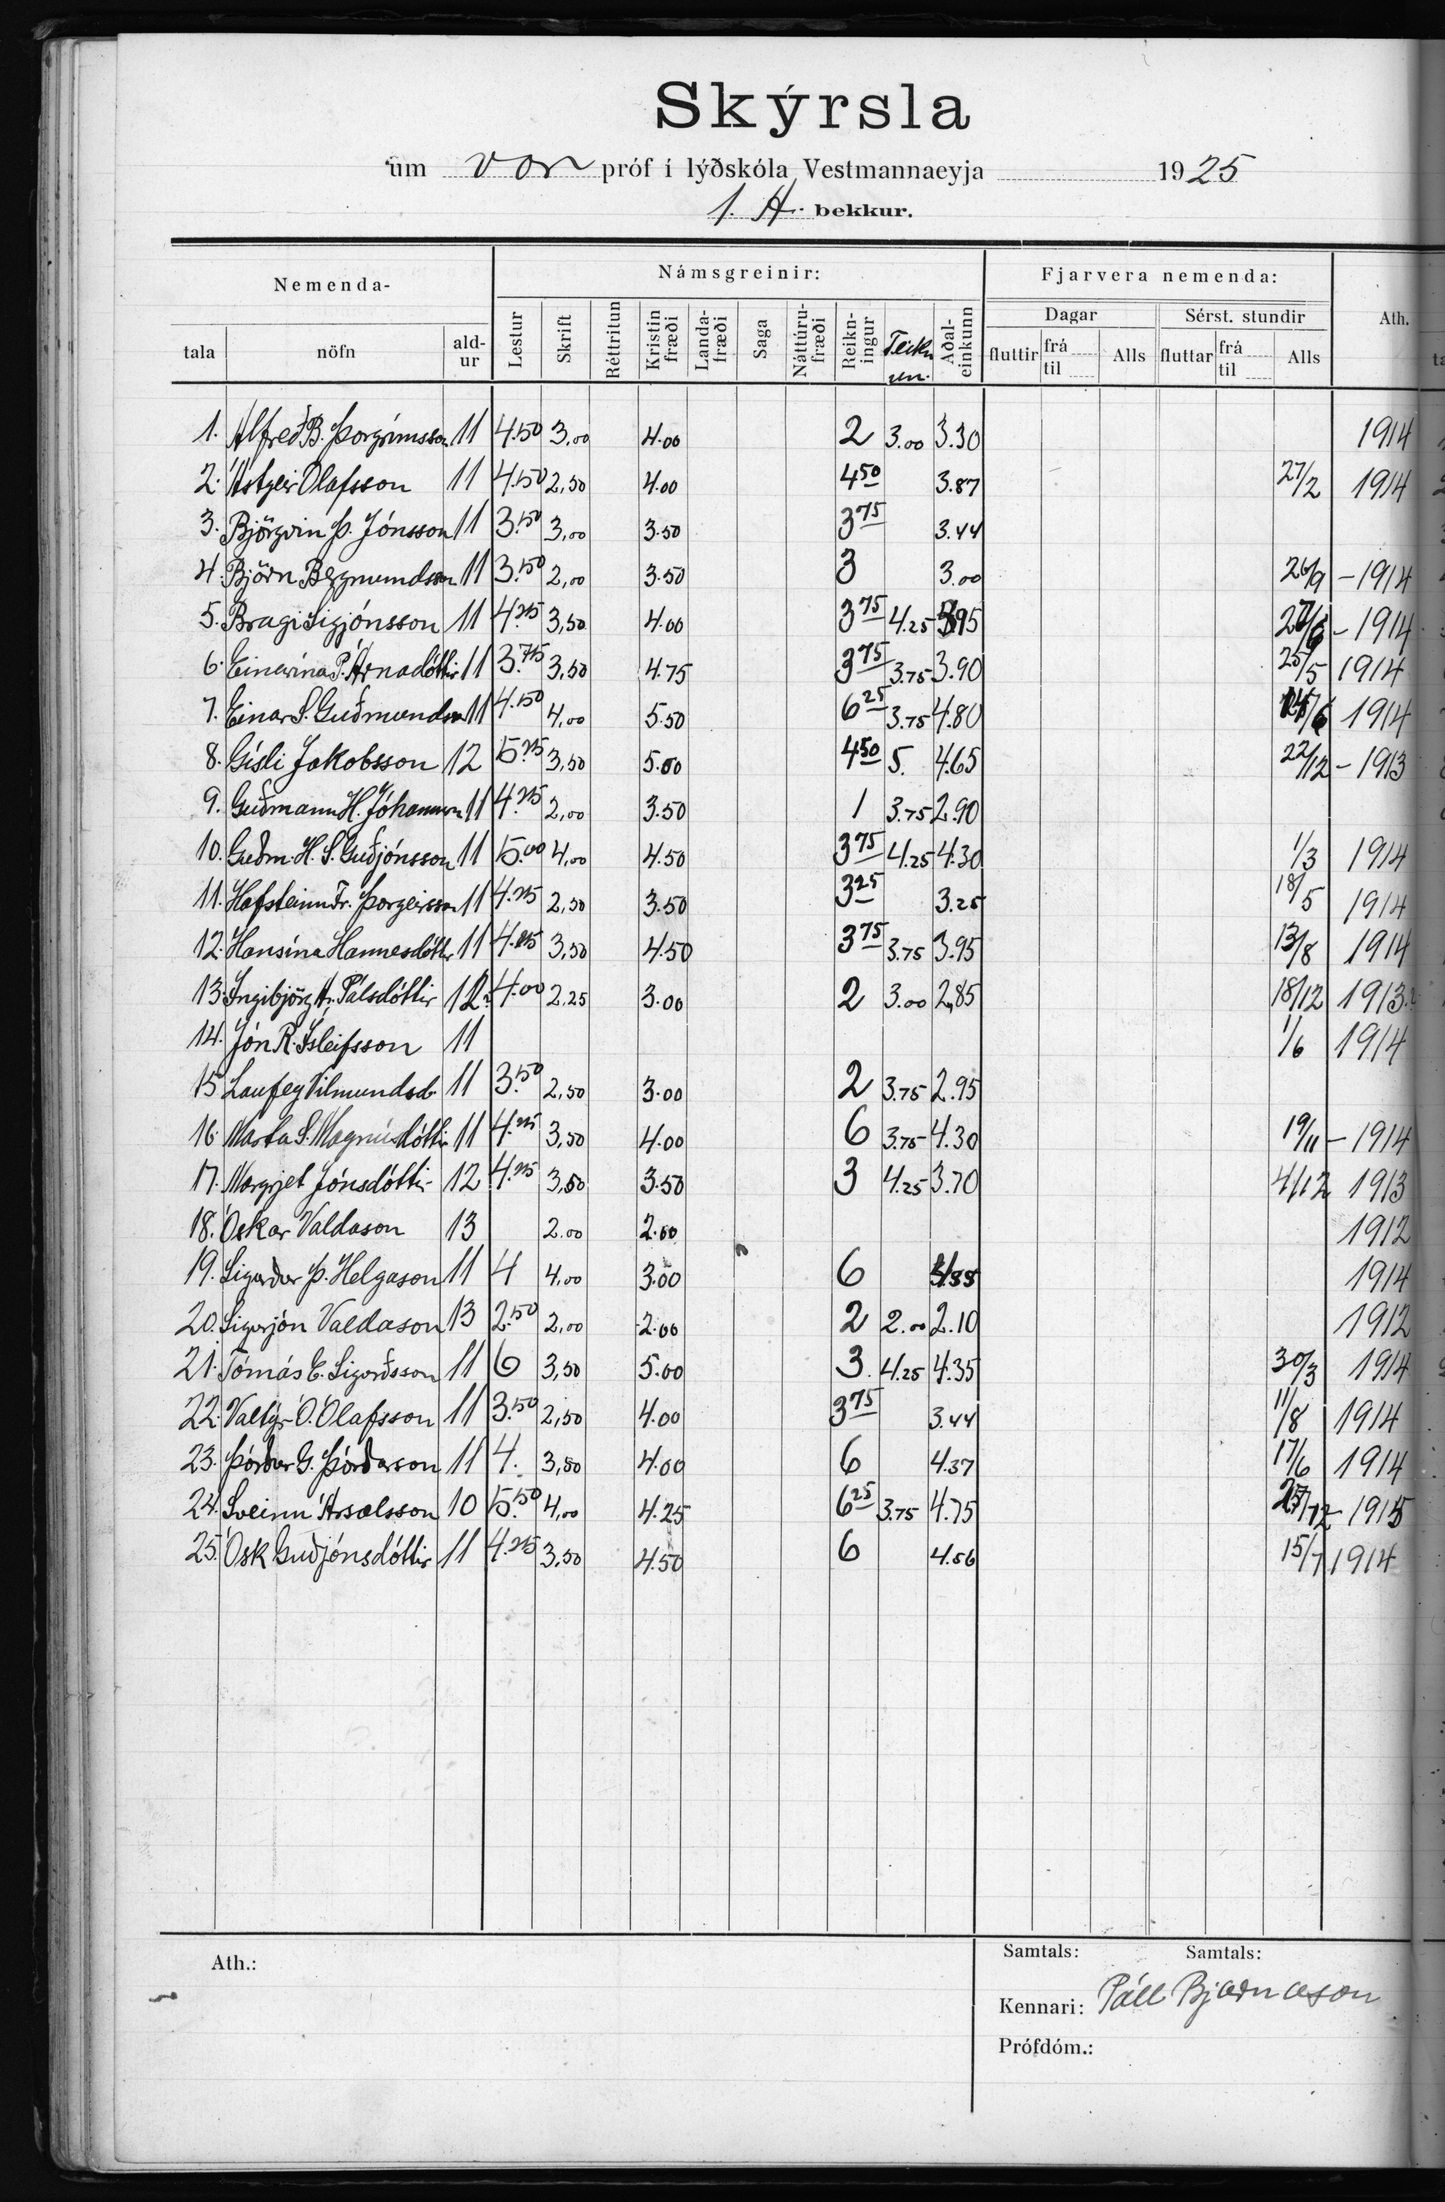 Skýrsla
um vor próf í lýðskóla Vestmannaeyja 1925
1. A. bekkur.
Nemenda- Námsgreinir: Fjarvera nemenda: Ath.
Dagar Sérst. stundir
tala nöfn ald-ur Lestur Skrift Réttritun Kristin fræði Landa-fræði Saga Náttúru-fræði Reikn-ingur Teikn un. Aðal-einkunn fluttir frá til Alls fluttar frá til Alls
1. Alfreð B. Þorgrímsson 11 4.50 3,00 4.00 2 3.00 3.30 1914
2. Ástgeir Ólafsson 11 4.50 2,50 4.00 4 50 3.87 27/2 1914
3. Björgvin Þ. Jónsson 11 3.50 3,00 3.50 3 75 3.44
4. Björn Bergmundsson 11 3.50 2,00 3.50 3 3.00 26/9 - 1914
5. Bragi Sigjónsson 11 4.25 3,50 4.00 3 75 4.25 3.95 - 1914
6. Einarína P. Árnadóttir 11 3.75 3,50 4.75 3 75 3.75 3.90 25/5 1914
7. Einar S. Guðmundsson 11 4.50 4,00 5.50 6 25 3.75 4.80 1914
8. Gísli Jakobsson 12 5.25 3,50 5.00 4 50 5. 4.65 22/12 - 1913
9. Guðmann H. Jóhannsson 11 4.25 2,00 3.50 1 3.75 2.90
10. Guðm. H. S. Guðjónsson 11 5.00 4,00 4.50 3 75 4.25 4.30 1/3 1914
11. Hafsteinn Fr. Þorgeirsson 11 4.25 2,50 3.50 3 25 3.25 18/5 1914
12. Hansína Hannesdóttir 11 4.25 3,50 4.50 3 75 3.75 3.95 13/8 1914
13. Ingibjörg Á. Pálsdóttir 12 4.00 2,25 3.00 2 3.00 2,85 18/12 1913
14. Jón R. Ísleifsson 11 1/6 1914
15 Laufey Vilmundsd. 11 3.50 2,50 3.00 2 3.75 2.95
16. Marta S. Magnúsdóttir 11 4.25 3,50 4.00 6 3.75 4.30 19/11 - 1914
17. Margrjet Jónsdóttir 12 4.25 3,50 3.50 3 4.25 3.70 4/12 1913
18. Óskar Valdason 13 2.00 2.00 1912
19. Sigurður Þ. Helgason 11 4 4,00 3.00 6 1914
20. Sigurjón Valdason 13 2.50 2,00 2.00 2 2.00 2.10 1912
21. Tómás E. Sigurðsson 11 6 3,50 5.00 3. 4.25 4.35 30/3 1914
22. Valtýr Ó. Ólafsson 11 3.50 2,50 4.00 3 75 3.44 11/8 1914
23. Þórður G. Þórðarson 11 4. 3,50 4.00 6 4.37 17/6 1914
24. Sveinn Ársælsson 10 5.50 4,00 4.25 6 25 3.75 4.75 - 1915
25. Ósk Guðjónsdóttir 11 4.25 3,50 4.50 6 4.56 15/7 1914
Ath.: Samtals: Samtals:
Kennari: Páll Bjarnason
Prófdóm.: